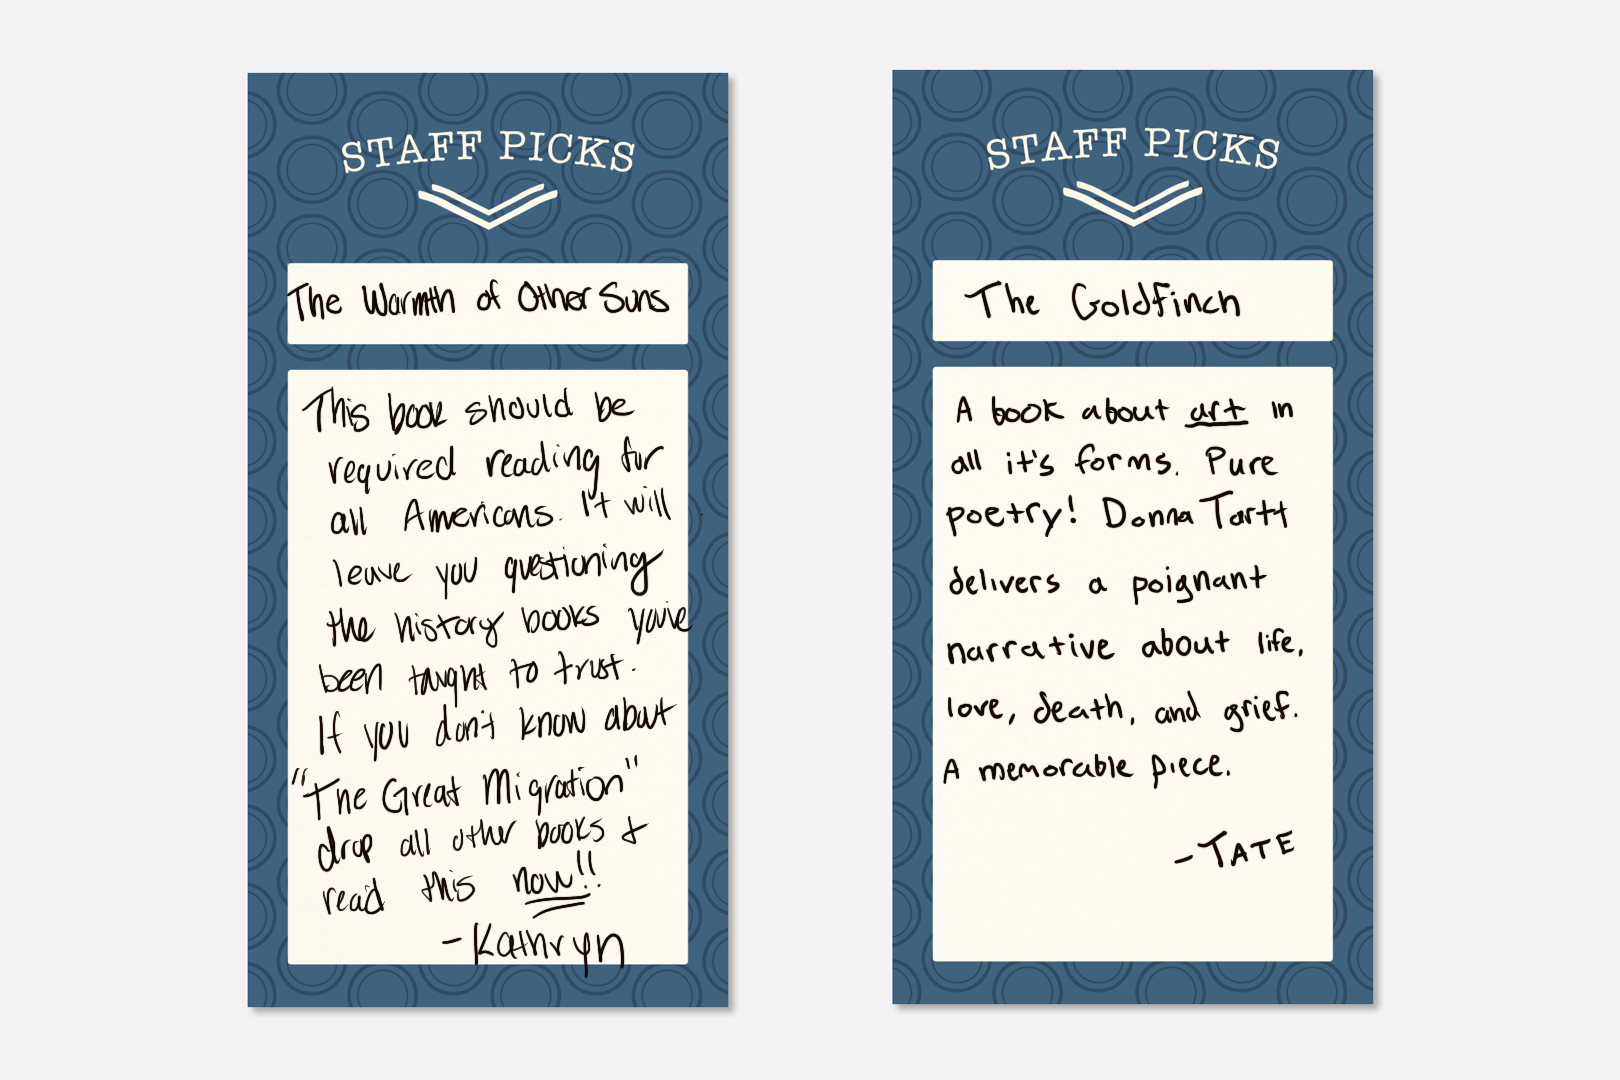 STAFF PICKS
The Warmth of Other Suns
This book should be
required reading for
all Americans. It will
leave you questioning
the history books you've
been taught to trust.
If you don't know about
"The Great Migration"
drop all other books &
read this now!!
-Kathryn
STAFF PICKS
The Goldfinch
A book about art in
all it's forms. Pure
poetry! Donna Tartt
delivers a poignant
narrative about life,
love, death, and grief.
A memorable piece.
-TATE